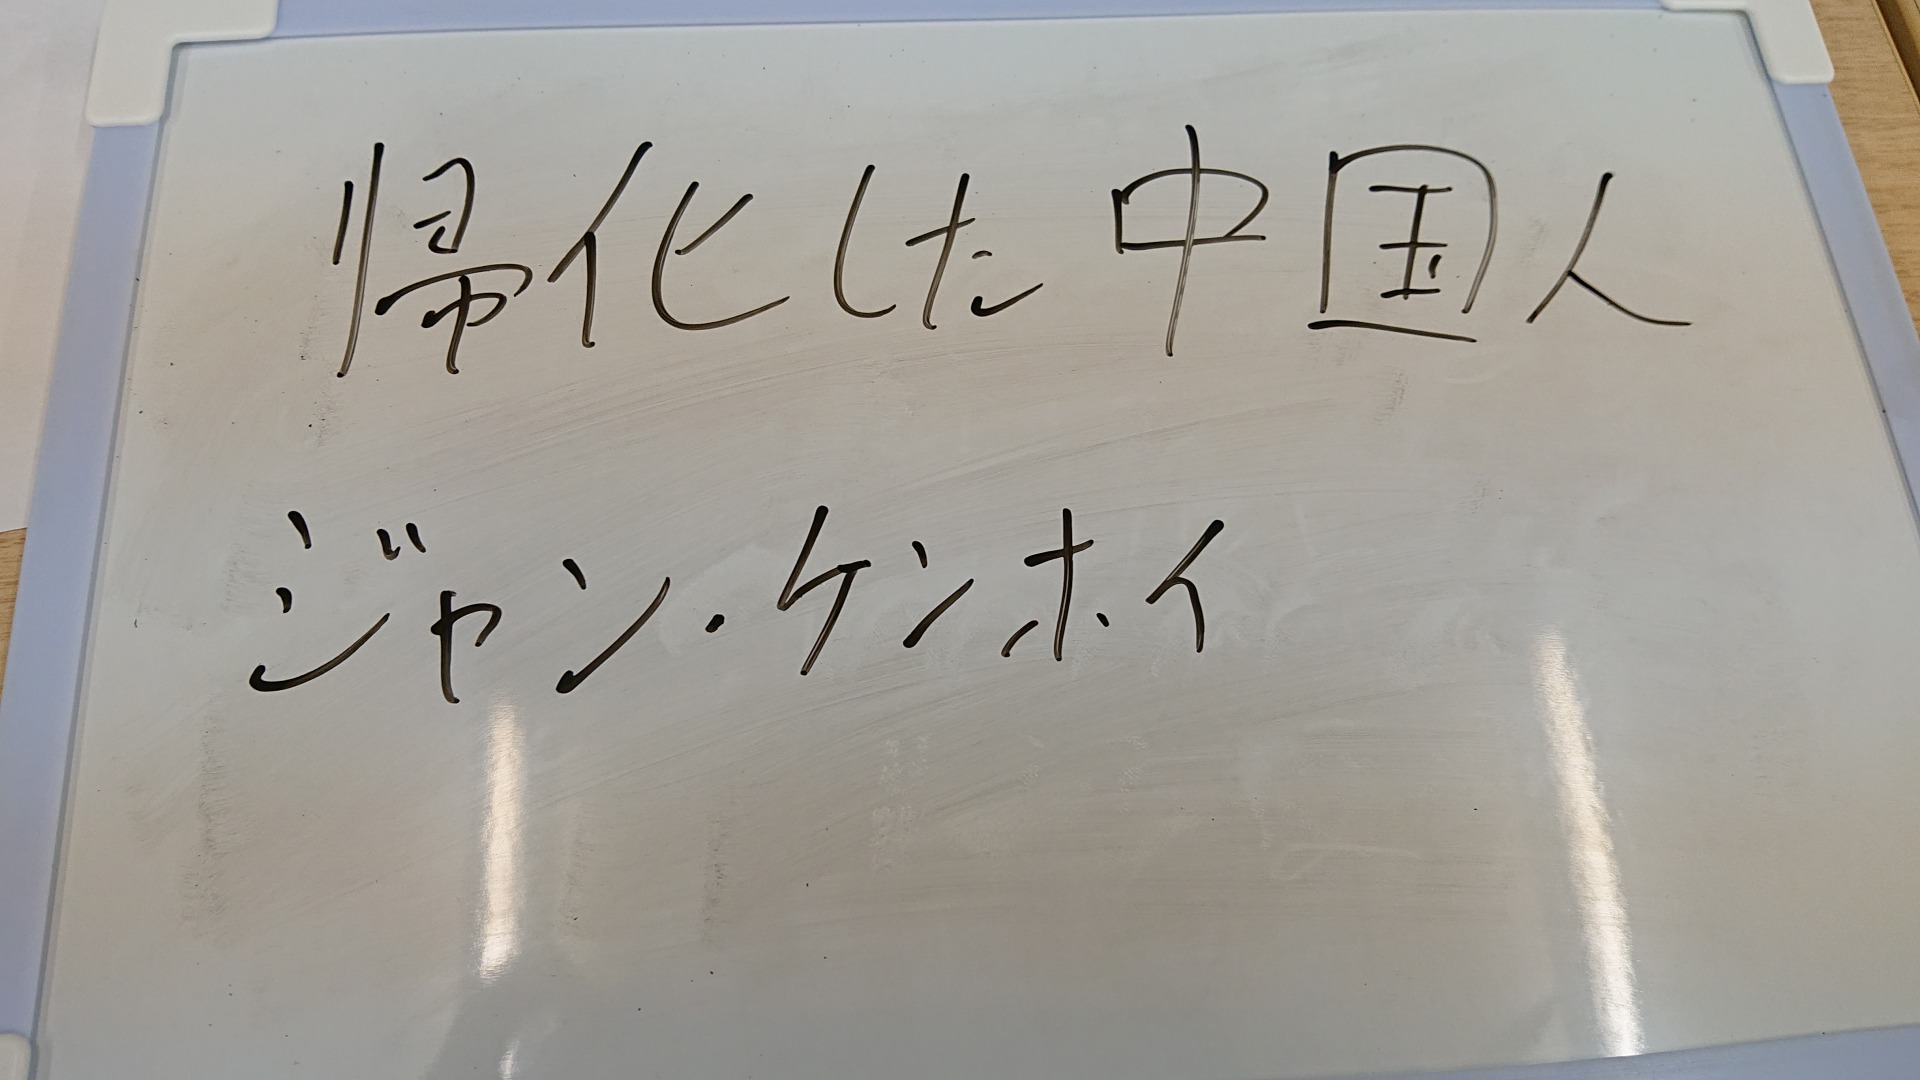 帰化した中国人
ジャン・ケンホイ